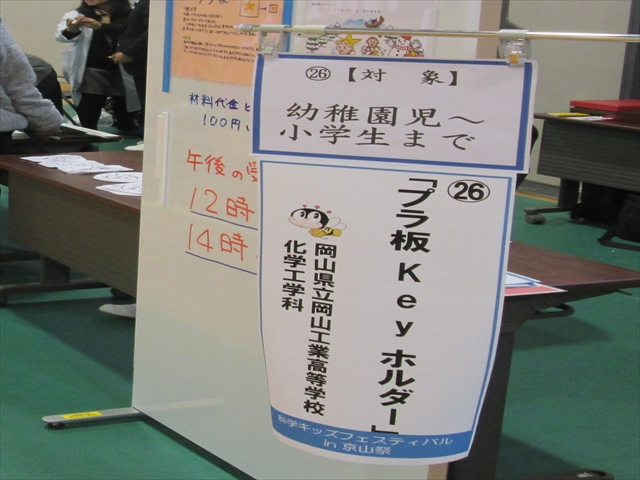 ㉖【対　象】
幼稚園児～
小学生まで
㉖
「プラ板Keyホルダー」
岡山県立岡山工業高等学校
化学工学科
科学キッズフェスティバル
in 京山祭
材料代金と
100円
午後の受
12時
14時